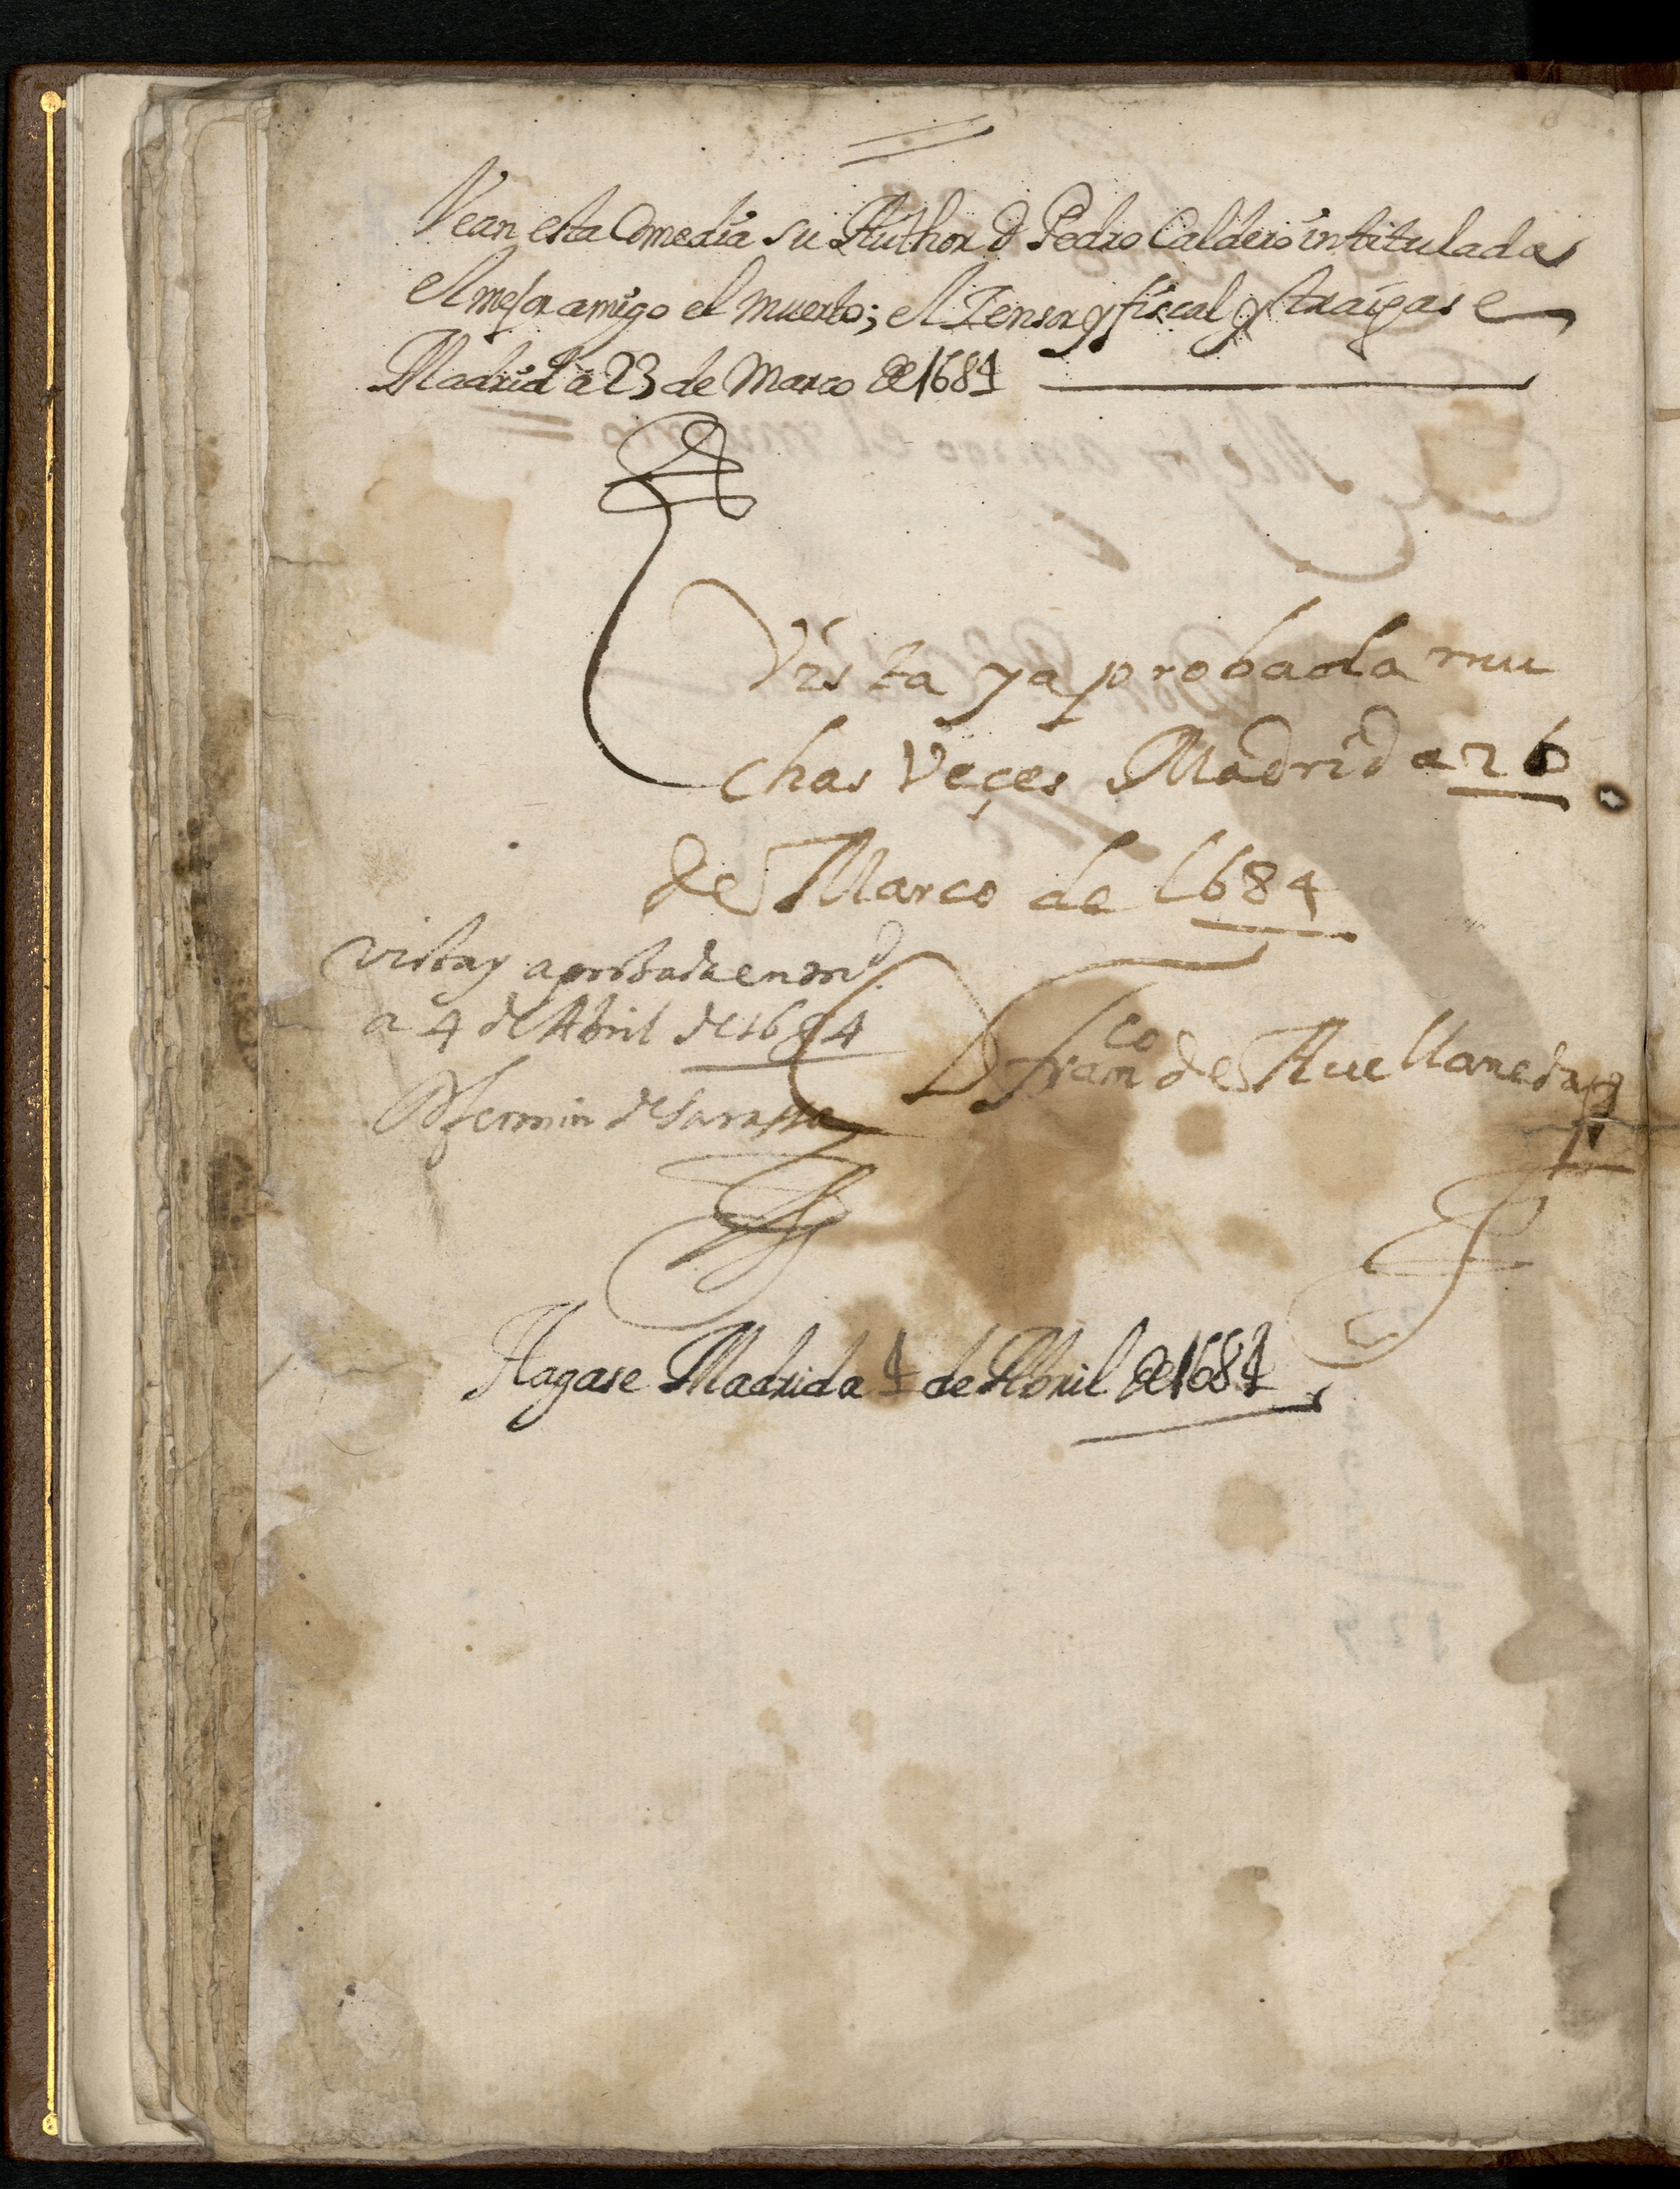 Vean esta Comedia su Author D Pedro Calderō intitulada
el mejor amigo el muerto; el Zensor y fiscal y traigase
Madrid a 23 de Março de 1684
Vista y aprobada mu
chas Veçes Madrid a 26
de Março de 1684
D franco de Auellaneda
Vista y aprobada en Md
a 4 de Abril de 1684
D fermin de Sarassa
Hagase Madrid a 4 de Abril de 1684